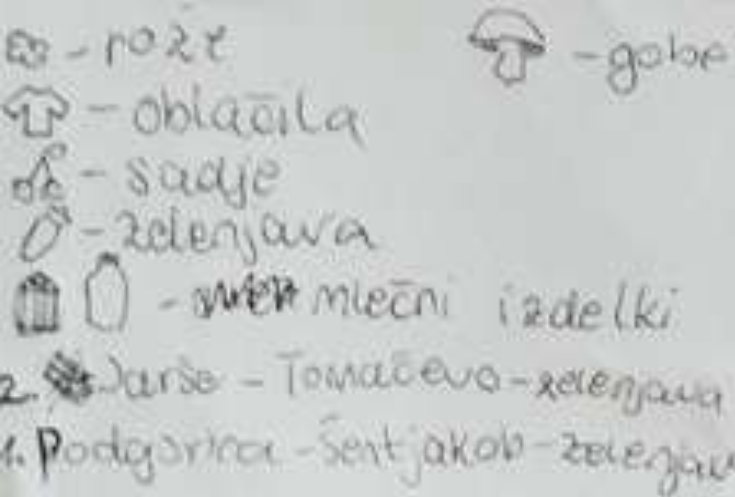 - rože
- gobe
- oblačila
- sadje
- zelenjava
- mlečni izdelki
2. Jarše - Tomačevo - zelenjava
1. Podgorica - Šentjakob - zelenjav